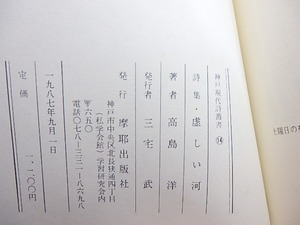 神戸現代詩叢書 ⑭
詩集・虚しい河
著者 高島洋
発行者 三宅武
発行 摩耶出版社
神戸市中央区北長狭通四丁目
(私学会館)学習研究会内
〒六五〇
電話〇七八―三三一―八六九八
一九八七年九月一日
定価 一、二〇〇円
土曜日の